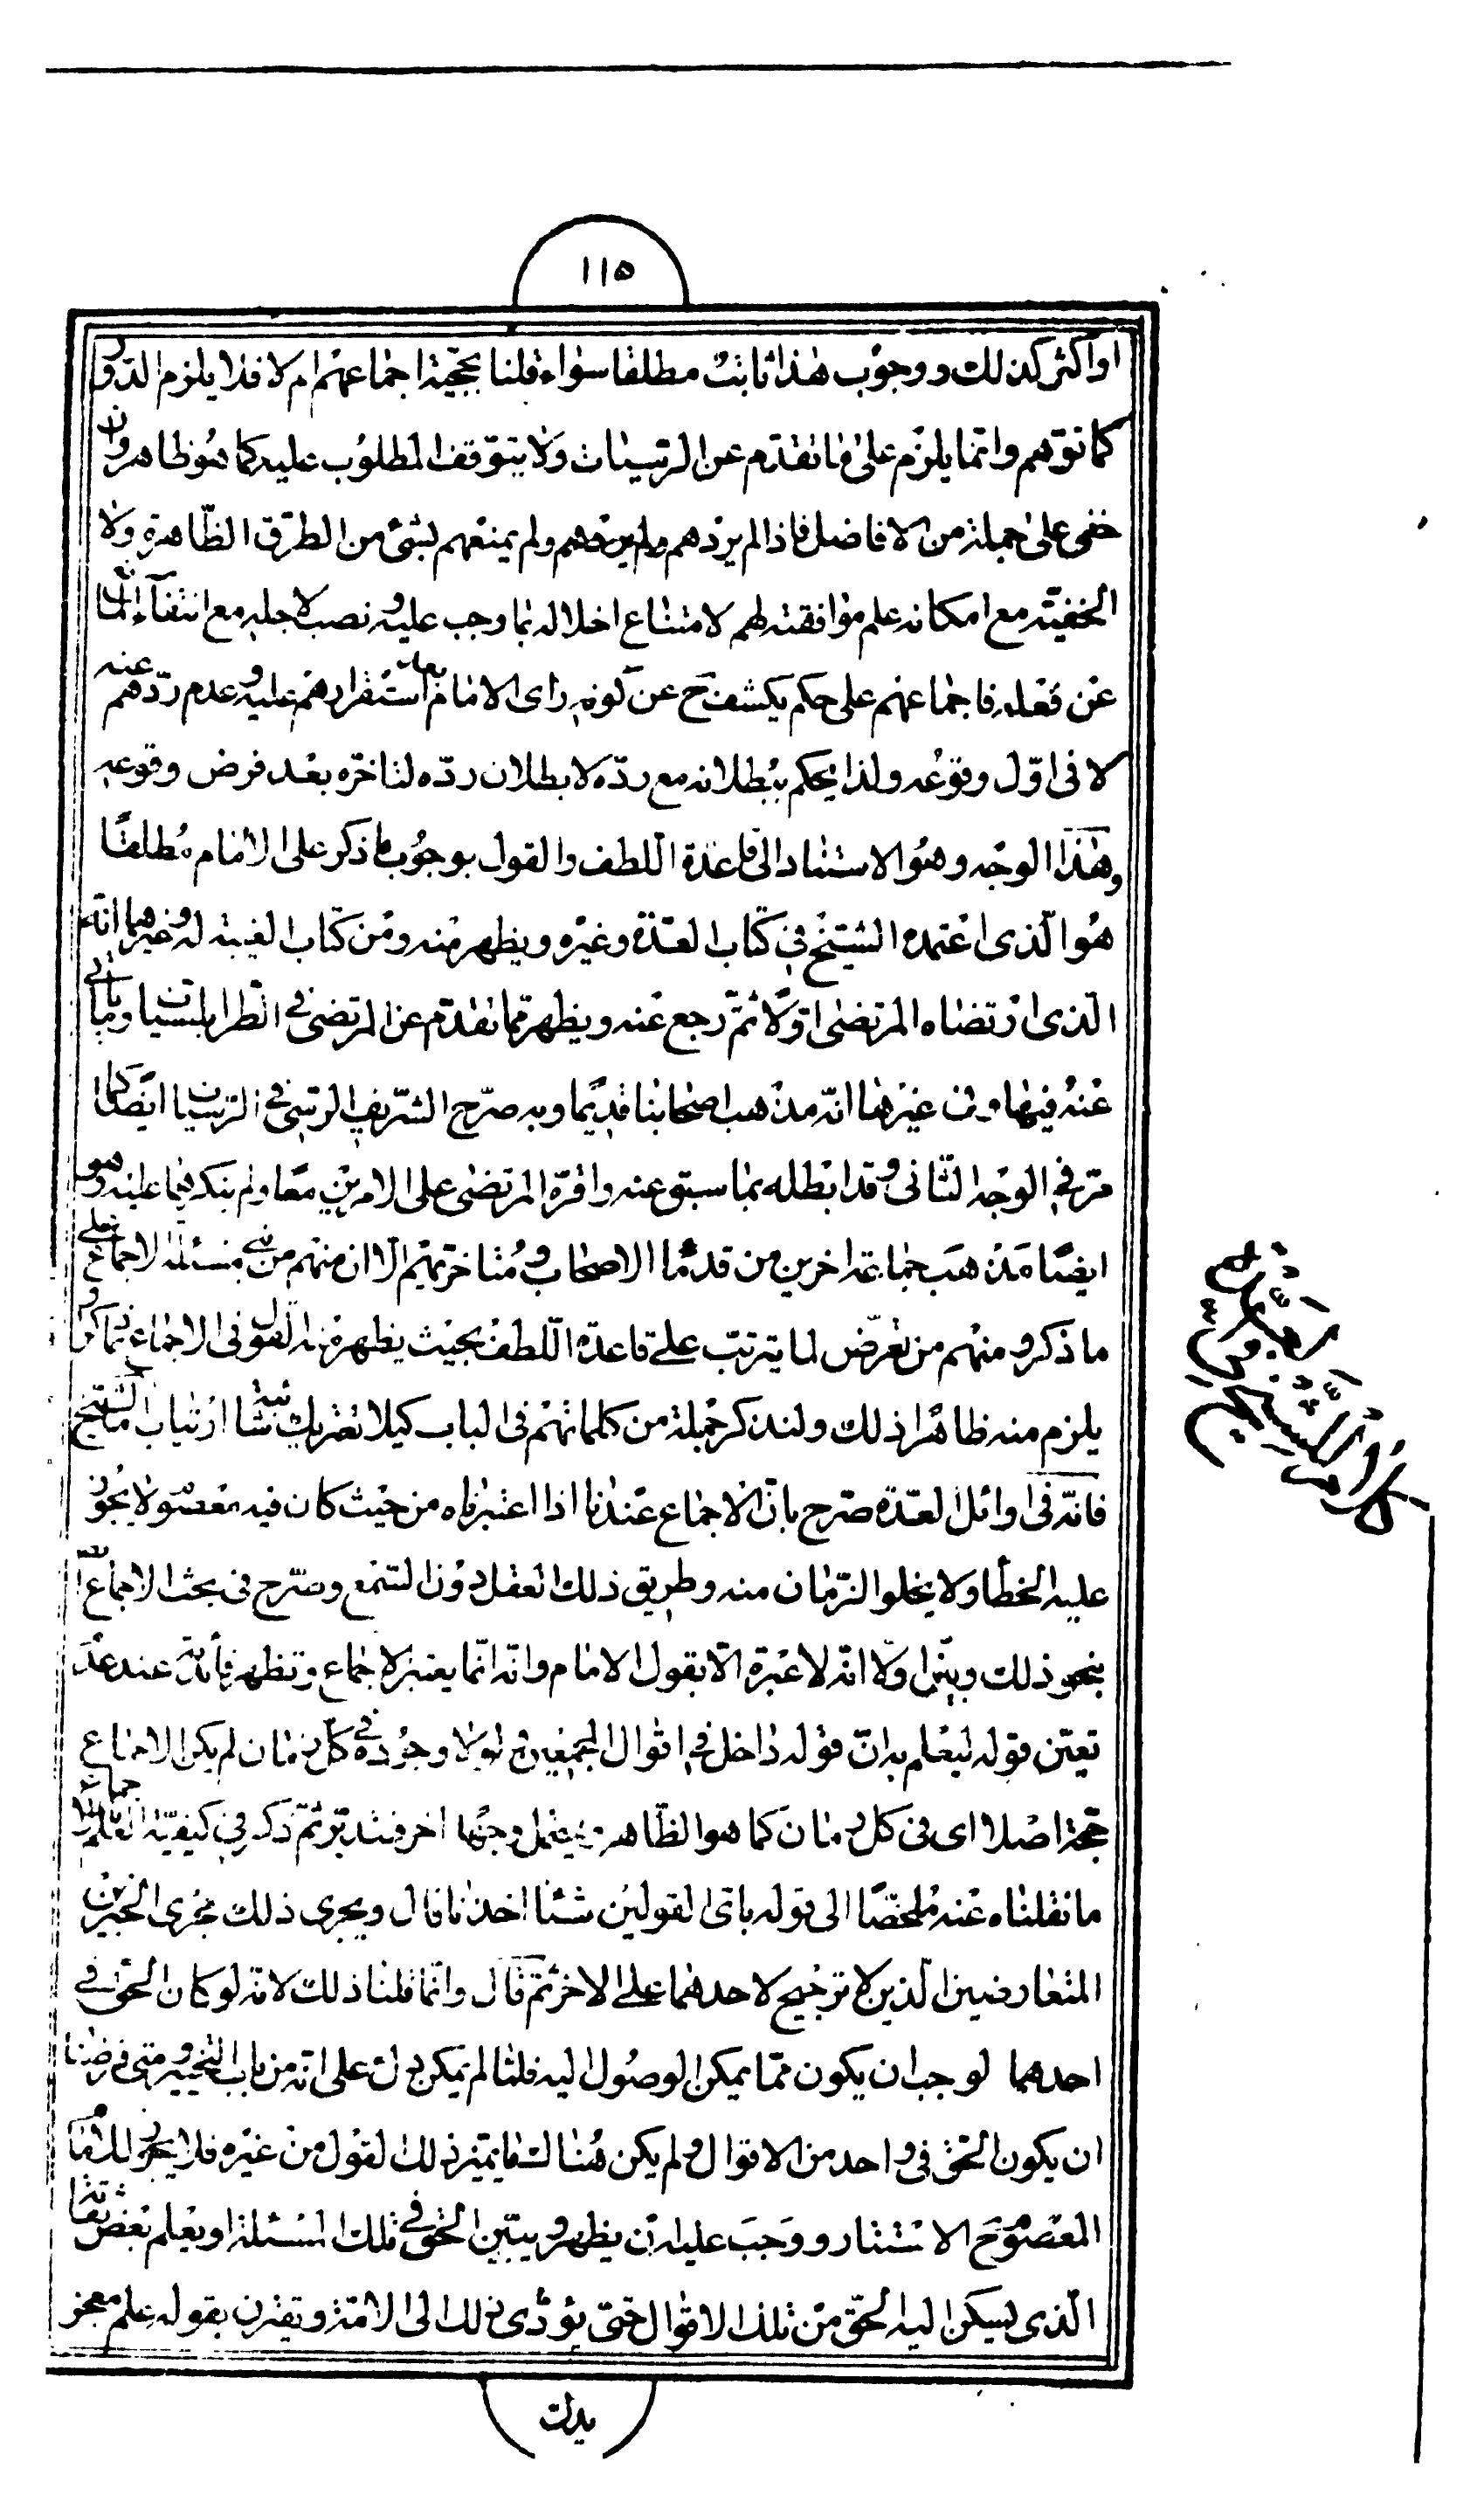 ١١٥
او اكثر كذلك ووجوب هذا ثابت مطلقا سواء قلنا بحجية اجماعهم ام لا فلا يلزم الدور
كما توهم وانما يلزم على ما تقدم عن الرسيات ولا يتوقف المطلوب عليه كما هو ظاهر وان
خفى على جملة من الافاضل فاذا لم يردهم ولم يمنعهم بشئ من الطرق الظاهرة ولا
الخفية مع امكانه علم موافقته لهم لامتناع اخلاله بما وجب عليه ونصب لاجله مع انتفاء المانع
عن فعله فاجماعهم على حكم يكشف ح عن كونه راى الامام بعد استقرارهم عليه وعدم ردهم عنه
لا فى اول وقوعه ولذا يحكم ببطلانه مع رده لا بطلان رده لتاخره بعد فرض وقوعه
وهذا الوجه وهو الاستناد الى قاعدة اللطف والقول بوجوب ما ذكر على الامام مطلقا
هو الذى اعتمده الشيخ فى كتاب العدة وغيره ويظهر منه ومن كتاب الغيبة له وغيرهما انه
الذى ارتضاه المرتضى اولا ثم رجع عنه ويظهر مما تقدم عن المرتضى فى الطرابلسيات ويأتى
عنه فيها وفى غيرها انه مذهب اصحابنا قديما وبه صرح الشريف الرسى فى الرسيات ايضا كما
مر فى الوجه الثانى وقد ابطله بما سبق عنه واقره المرتضى على الامرين معا ولم ينكرهما عليه وهو
ايضا مذهب جماعة اخرين من قدماء الاصحاب ومتاخريهم الا ان منهم من نص فى مسئلة الاجماع على
ما ذكر ومنهم من تعرض لما يترتب على قاعدة اللطف بحيث يظهر منه القول فى الاجماع بما ذكر او
يلزم منه ظاهرا ذلك ولنذكر جملة من كلماتهم فى الباب كيلا يعتريك شائبة ارتياب اما الشيخ
فانه فى اوائل العدة صرح بان الاجماع عندنا اذا اعتبرناه من حيث كان فيه معصوم لا يجوز
عليه الخطأ ولا يخلو الزمان منه وطريق ذلك العقل دون السمع وصرح فى بحث الاجماع
بنحو ذلك وبين اولا انه لا عبرة الا بقول الامام وانه انما يعتبر الاجماع وتظهر فائدته عند عدم
تعين قوله ليعلم به ان قوله داخل فى اقوال المجمعين ولولا وجوده فى كل زمان لم يكن الاجماع
حجة اصلا اى فى كل زمان كما هو الظاهر ويحتمل وجها اخر فتدبر ثم ذكر فى كيفية العلم
ما نقلناه عنه ملخصا الى قوله باى القولين شئنا اخذنا قال ويجرى ذلك مجرى الخبرين
المتعارضين الذين لا ترجيح لاحدهما على الاخر ثم قال وانما قلنا ذلك لانه لو كان الحق فى
احدهما لوجب ان يكون مما يمكن الوصول اليه فلما لم يمكن دل على انه من باب التخيير ومتى فرضنا
ان يكون الحق فى واحد من الاقوال ولم يكن هناك ما يميز ذلك القول من غيره فلا يجوز للامام
المعصوم ح الاستتار ووجب عليه ان يظهر ويبين الحق فى تلك المسئلة او يعلم بعض ثقاته
الذى يسكن اليه الحق من تلك الاقوال حتى يؤدى ذلك الى الامة ويقترن بقوله علم معجز
يدل